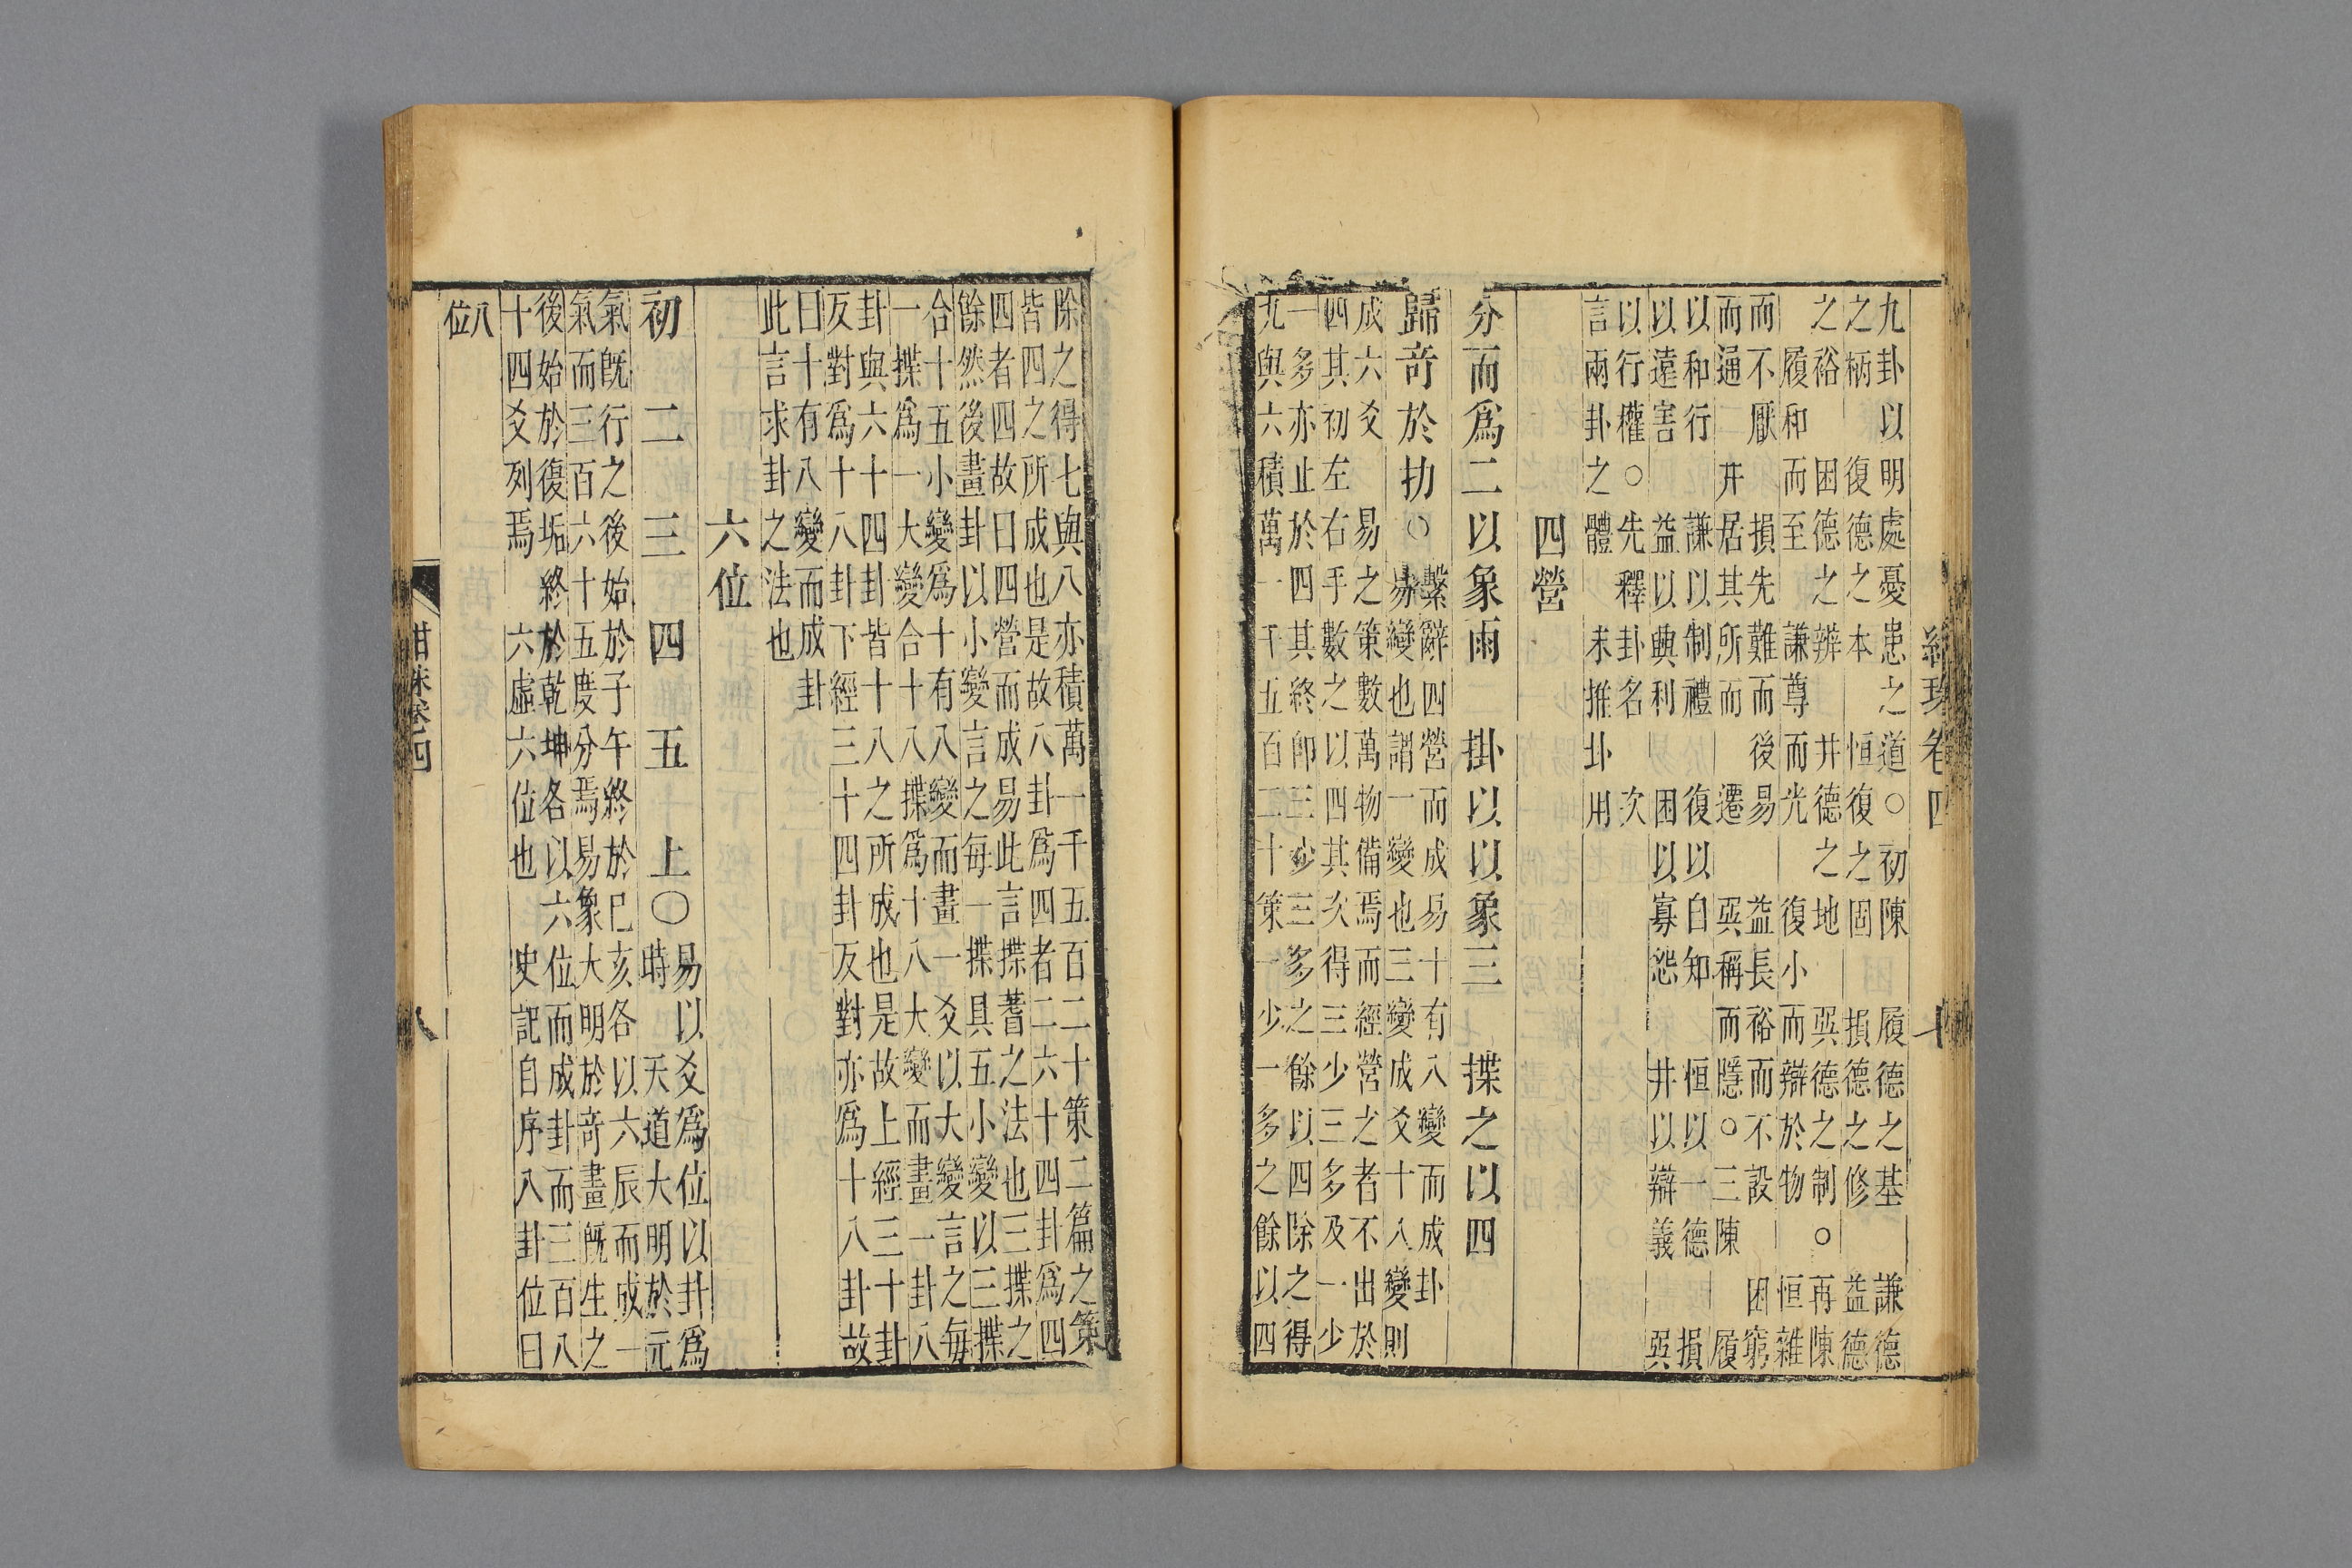 紺珠卷四 十
九卦以明處憂患之道○初陳 履德之基 謙德
之柄 復德之本 恒復之固 損德之修 益德
之裕 困德之辨 井德之地 巽德之制○再陳
履和而至 謙尊而光 復小而辯於物 恒雜
而不厭 損先難而後易 益長裕而不設 困窮
而通 井居其所而遷 巽稱而隱○三陳 履
以和行 謙以制禮 復以自知 恒以一德 損
以遠害 益以興利 困以寡怨 井以辯義 巽
以行權○先釋卦名次
言兩卦之體末推卦用
四營
分而爲二以象兩 掛以以象三 揲之以四
歸奇於扐○
繫辭四營而成易十有八變而成卦
易變也謂一變也三變成爻十八變則
成六爻 易之策數萬物備焉而經營之者不出於
四其初左右手數之以四其次得三少三多及一少
一多亦止於四其終卽三少三多之餘以四除之得
九與六積萬一千五百二十策一少一多之餘以四
除之得七與八亦積萬一千五百二十策二篇之策
皆四之所成也是故八卦爲四者二六十四卦爲四
四者四故曰四營而成易此言揲蓍之法也三揲之
餘然後畫卦以小變言之每一揲具五小變以三揲
合十五小變爲十有八變而畫一爻以大變言之每
一揲爲一大變合十八揲爲十八大變而畫一卦八
卦與六十四卦皆十八之所成也是故上經三十卦
反對爲十八卦下經三十四卦反對亦爲十八卦故
曰十有八變而成卦
此言求卦之法也
六位
初 二 三 四 五 上○
易以爻爲位以卦爲
時 天道大明於元
氣旣行之後始於子午終於巳亥各以六辰而成一
氣而三百六十五度分焉易象大明於奇畫旣生之
後始於復垢終於乾坤各以六位而成卦而三百八
十四爻列焉 六虛六位也 史記自序八卦位曰
八
位
紺珠卷四 八